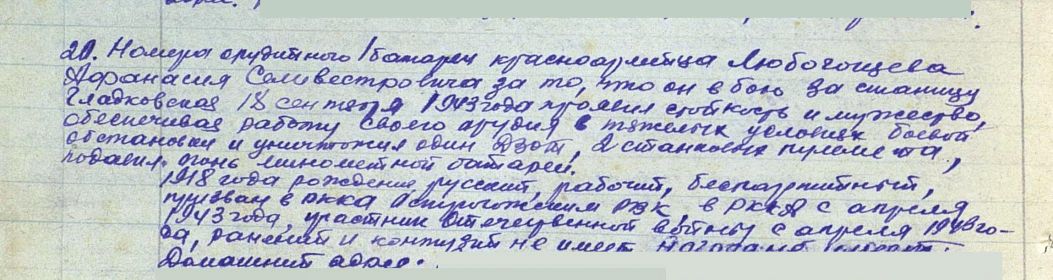 20. Номера орудийного 1 батареи красноармейца Любогощева
Афанасия Селивестровича за то, что он в бою за станицу
Гладковская 18 сентября 1943 года проявил стойкость и мужество,
обеспечивая работу своего орудия в тяжелых условиях боевой
обстановки и уничтожил один ДЗОТ, 2 станковых пулемета,
подавил огонь минометной батареи.
1918 года рождения, русский, рабочий, беспартийный,
призван в РККА РВК, в РККА с апреля
1943 года, участник Отечественной войны с апреля 1943 го-
да, ранений и контузий не имеет
Домашний адрес: